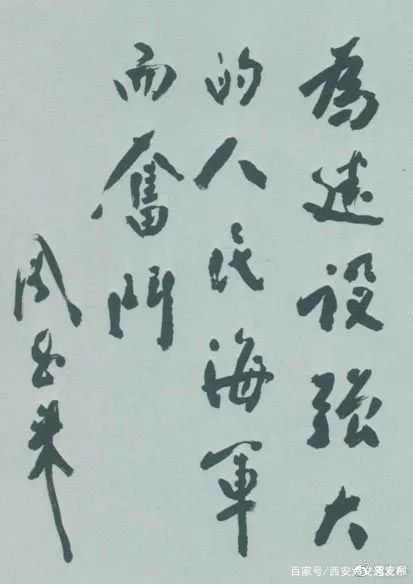 為建设强大
的人民海軍
而奮鬥
周恩来
百家号/西安